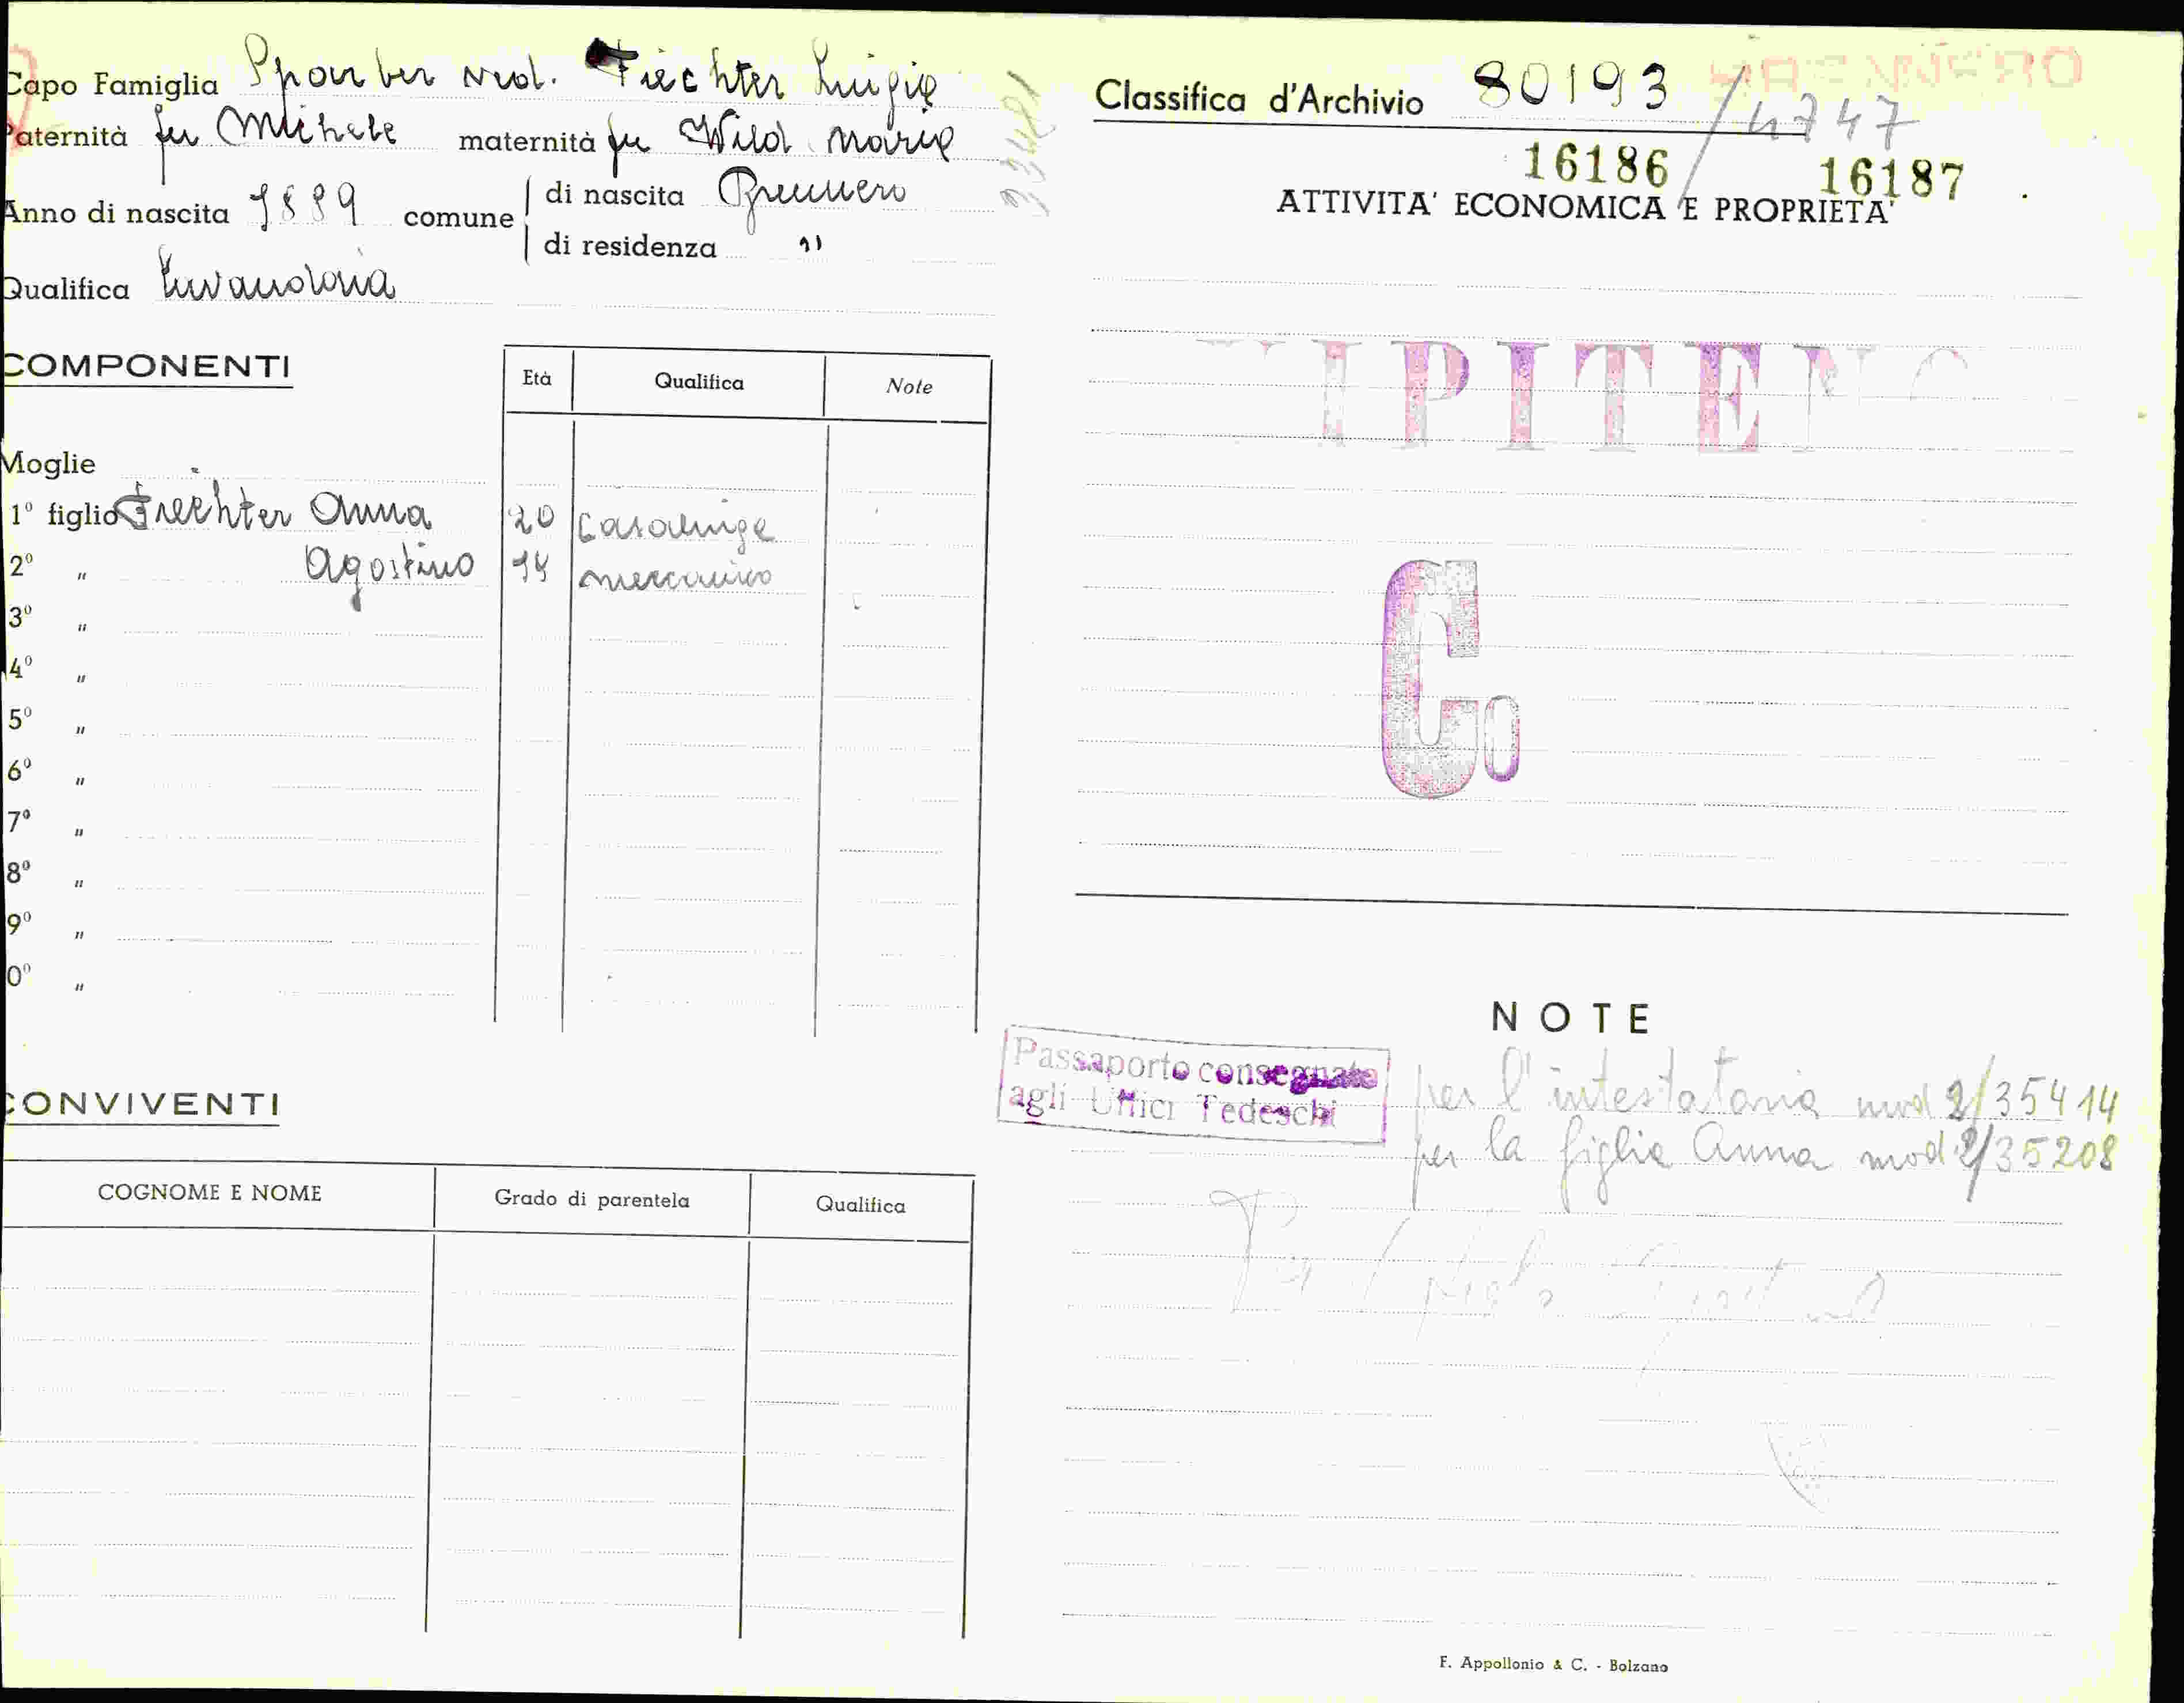 Capo Famiglia Sporber ved. Trechter Luigia
Paternità fu Michele maternità fu Wild Maria
Anno di nascita 1889 comune di nascita Brennero
di residenza "
Qualifica lavandaia
COMPONENTI
Età Qualifica Note
Moglie
1º figlio Trechter Anna 20 casalinga
2º " Agostino 14 meccanico
3º "
4º "
5º "
6º "
7º "
8º "
9º "
0º "
CONVIVENTI
COGNOME E NOME Grado di parentela Qualifica
BRENNERO
Classifica d'Archivio 80193 / 4747
16186 / 16187
ATTIVITA' ECONOMICA E PROPRIETA'
VIPITENO
Co
NOTE
Passaporto consegnato
agli Uffici Tedeschi
per l'intestataria mod 2/35414
per la figlia Anna mod 2/35208
F. Appollonio & C. - Bolzano